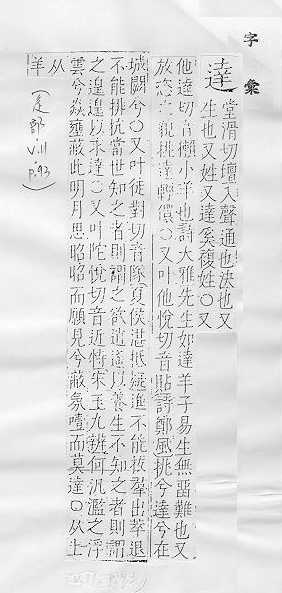 字彙
達
堂滑切壇入聲通也決也又
生也又姓又達奚複姓〇又
他達切音獺小羊也詩大雅先生如達羊子易生無畱難也又
放恣之貌挑達輕儇〇又叶他悅切音貼詩鄭風挑兮達兮在
城闕兮〇又叶徒對切音隊夏侯湛抵疑進不能拔羣出萃退
不能排抗當世知之者則謂之欲逍遙以養生不知之者則謂
之遑遑以求達〇又叶陀悅切音近特宋玉九辨何汎濫之浮
雲兮猋壅蔽此明月思昭昭而願見兮蔽氛曀而莫達〇从土
从羊
(辵部 VIII P.93)